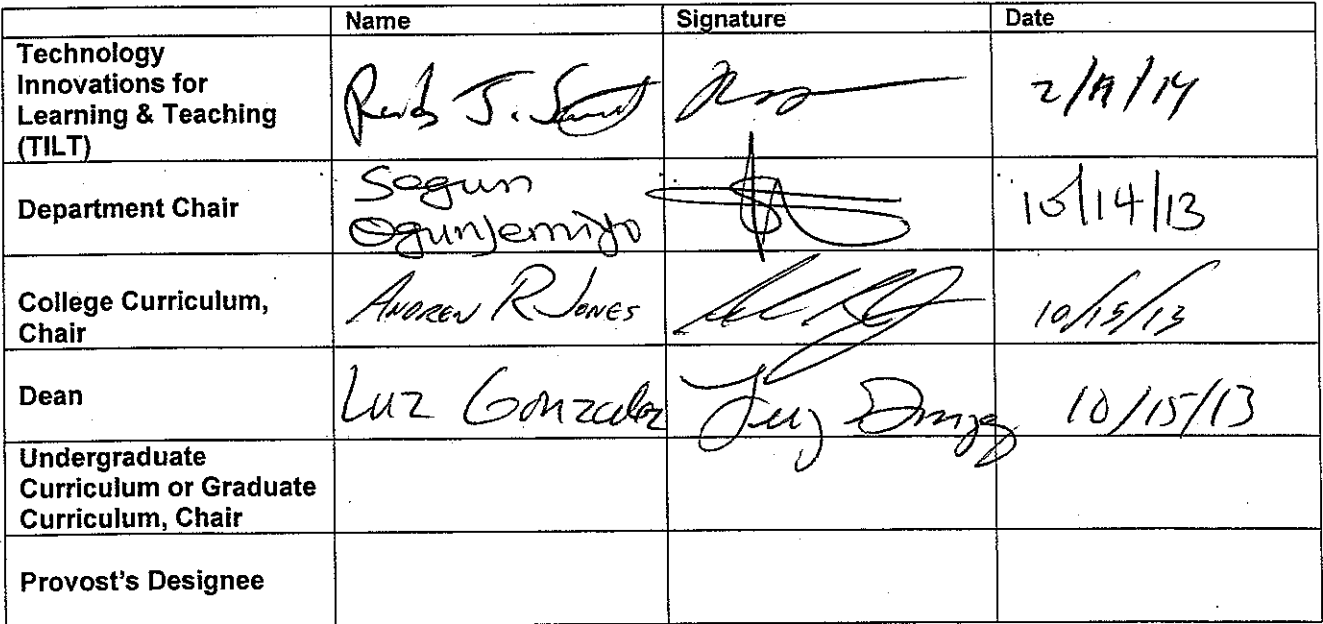 Name Signature Date
Technology
Innovations for
Learning & Teaching
(TILT)
J.
Department Chair
Segun
Ogunjemiyo
10/14/13
College Curriculum,
Chair
ANDREW R JONES
10/15/13
Dean
Luz Gonzalez
10/15/13
Undergraduate
Curriculum or Graduate
Curriculum, Chair
Provost's Designee